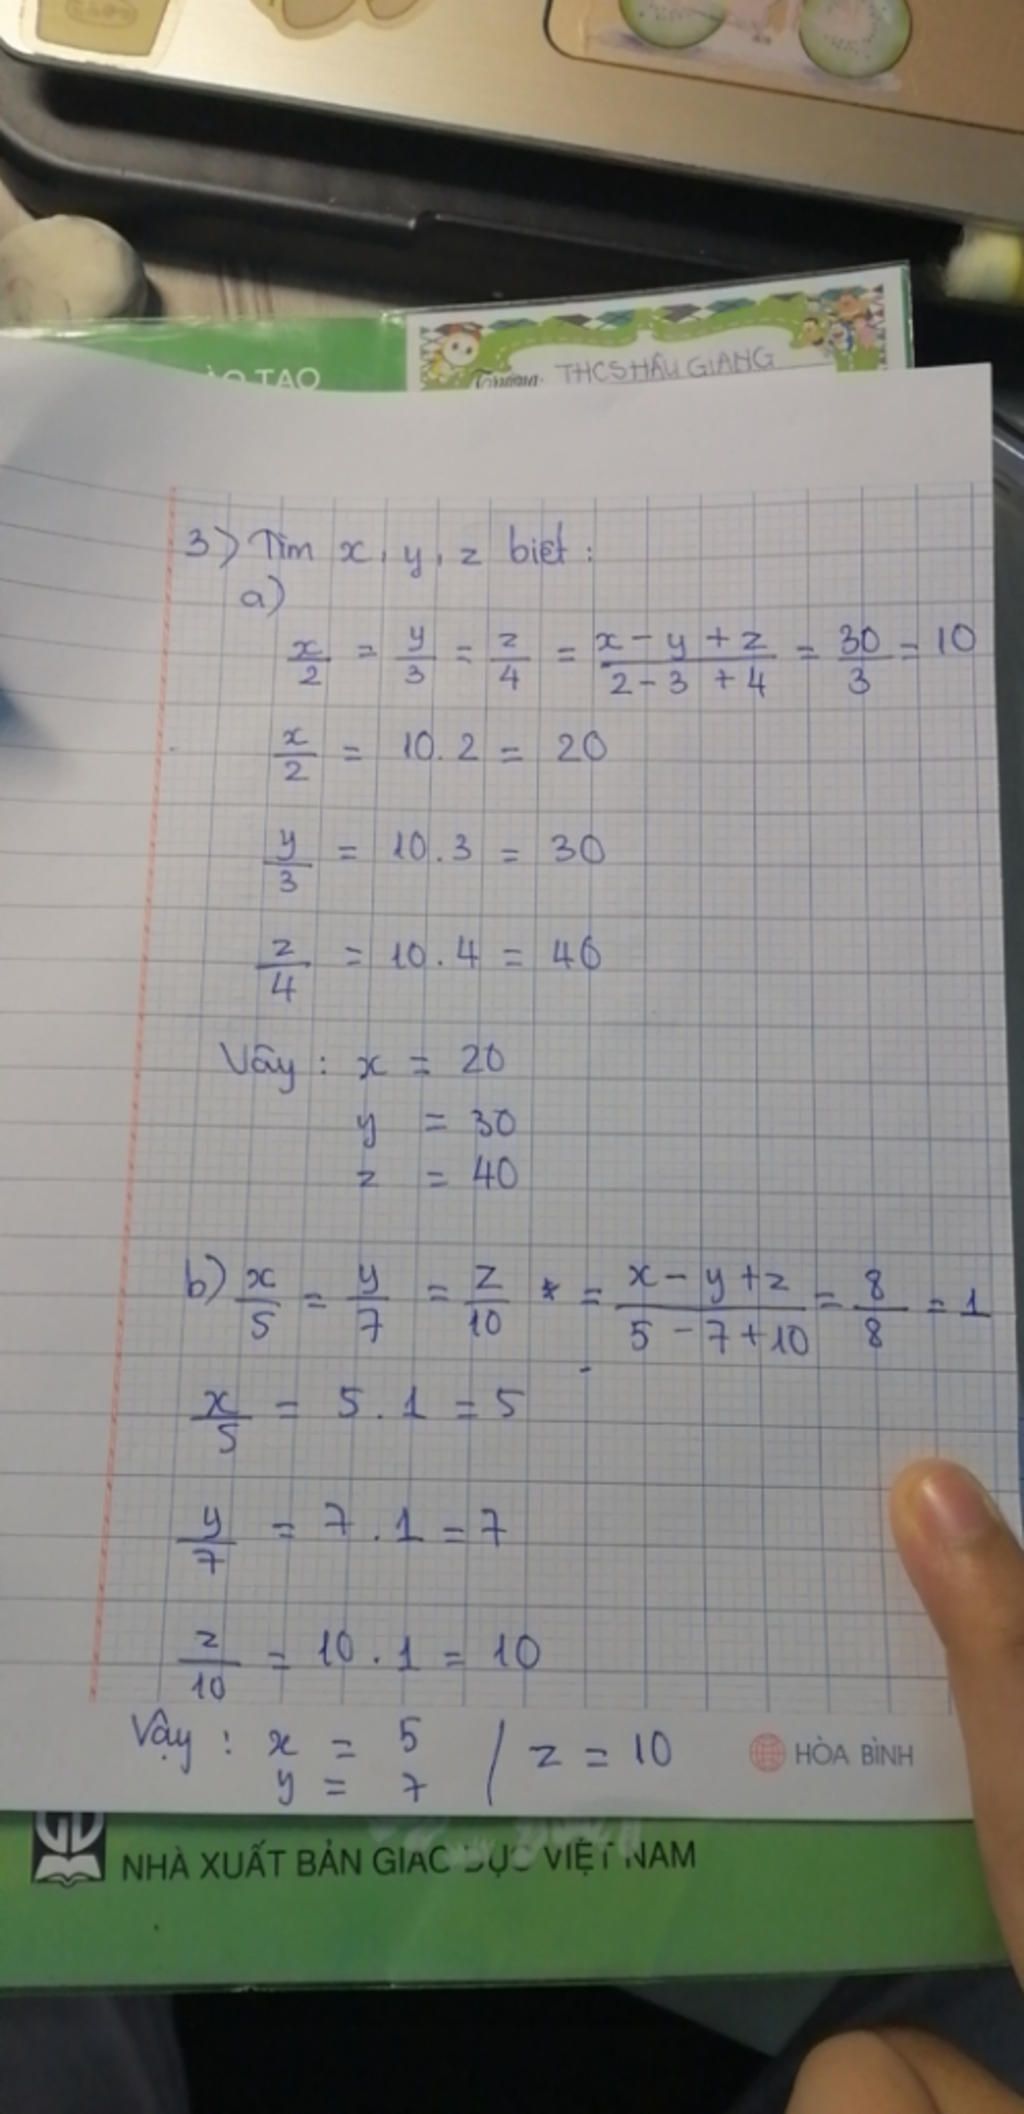 ÀO TẠO
Trường: THCS HẬU GIANG
3) Tìm x, y, z biết:
a)
x/2 = y/3 = z/4 = x - y + z/2 - 3 + 4 = 30/3 = 10
x/2 = 10.2 = 20
y/3 = 10.3 = 30
z/4 = 10.4 = 40
Vây: x = 20
y = 30
z = 40
b) x/5 = y/7 = z/10 = x - y + z/5 - 7 + 10 = 8/8 = 1
x/5 = 5.1 = 5
y/7 = 7.1 = 7
z/10 = 10.1 = 10
Vậy: x = 5 / z = 10
y = 7
HÒA BÌNH
GD
NHÀ XUẤT BẢN GIÁO DỤC VIỆT NAM